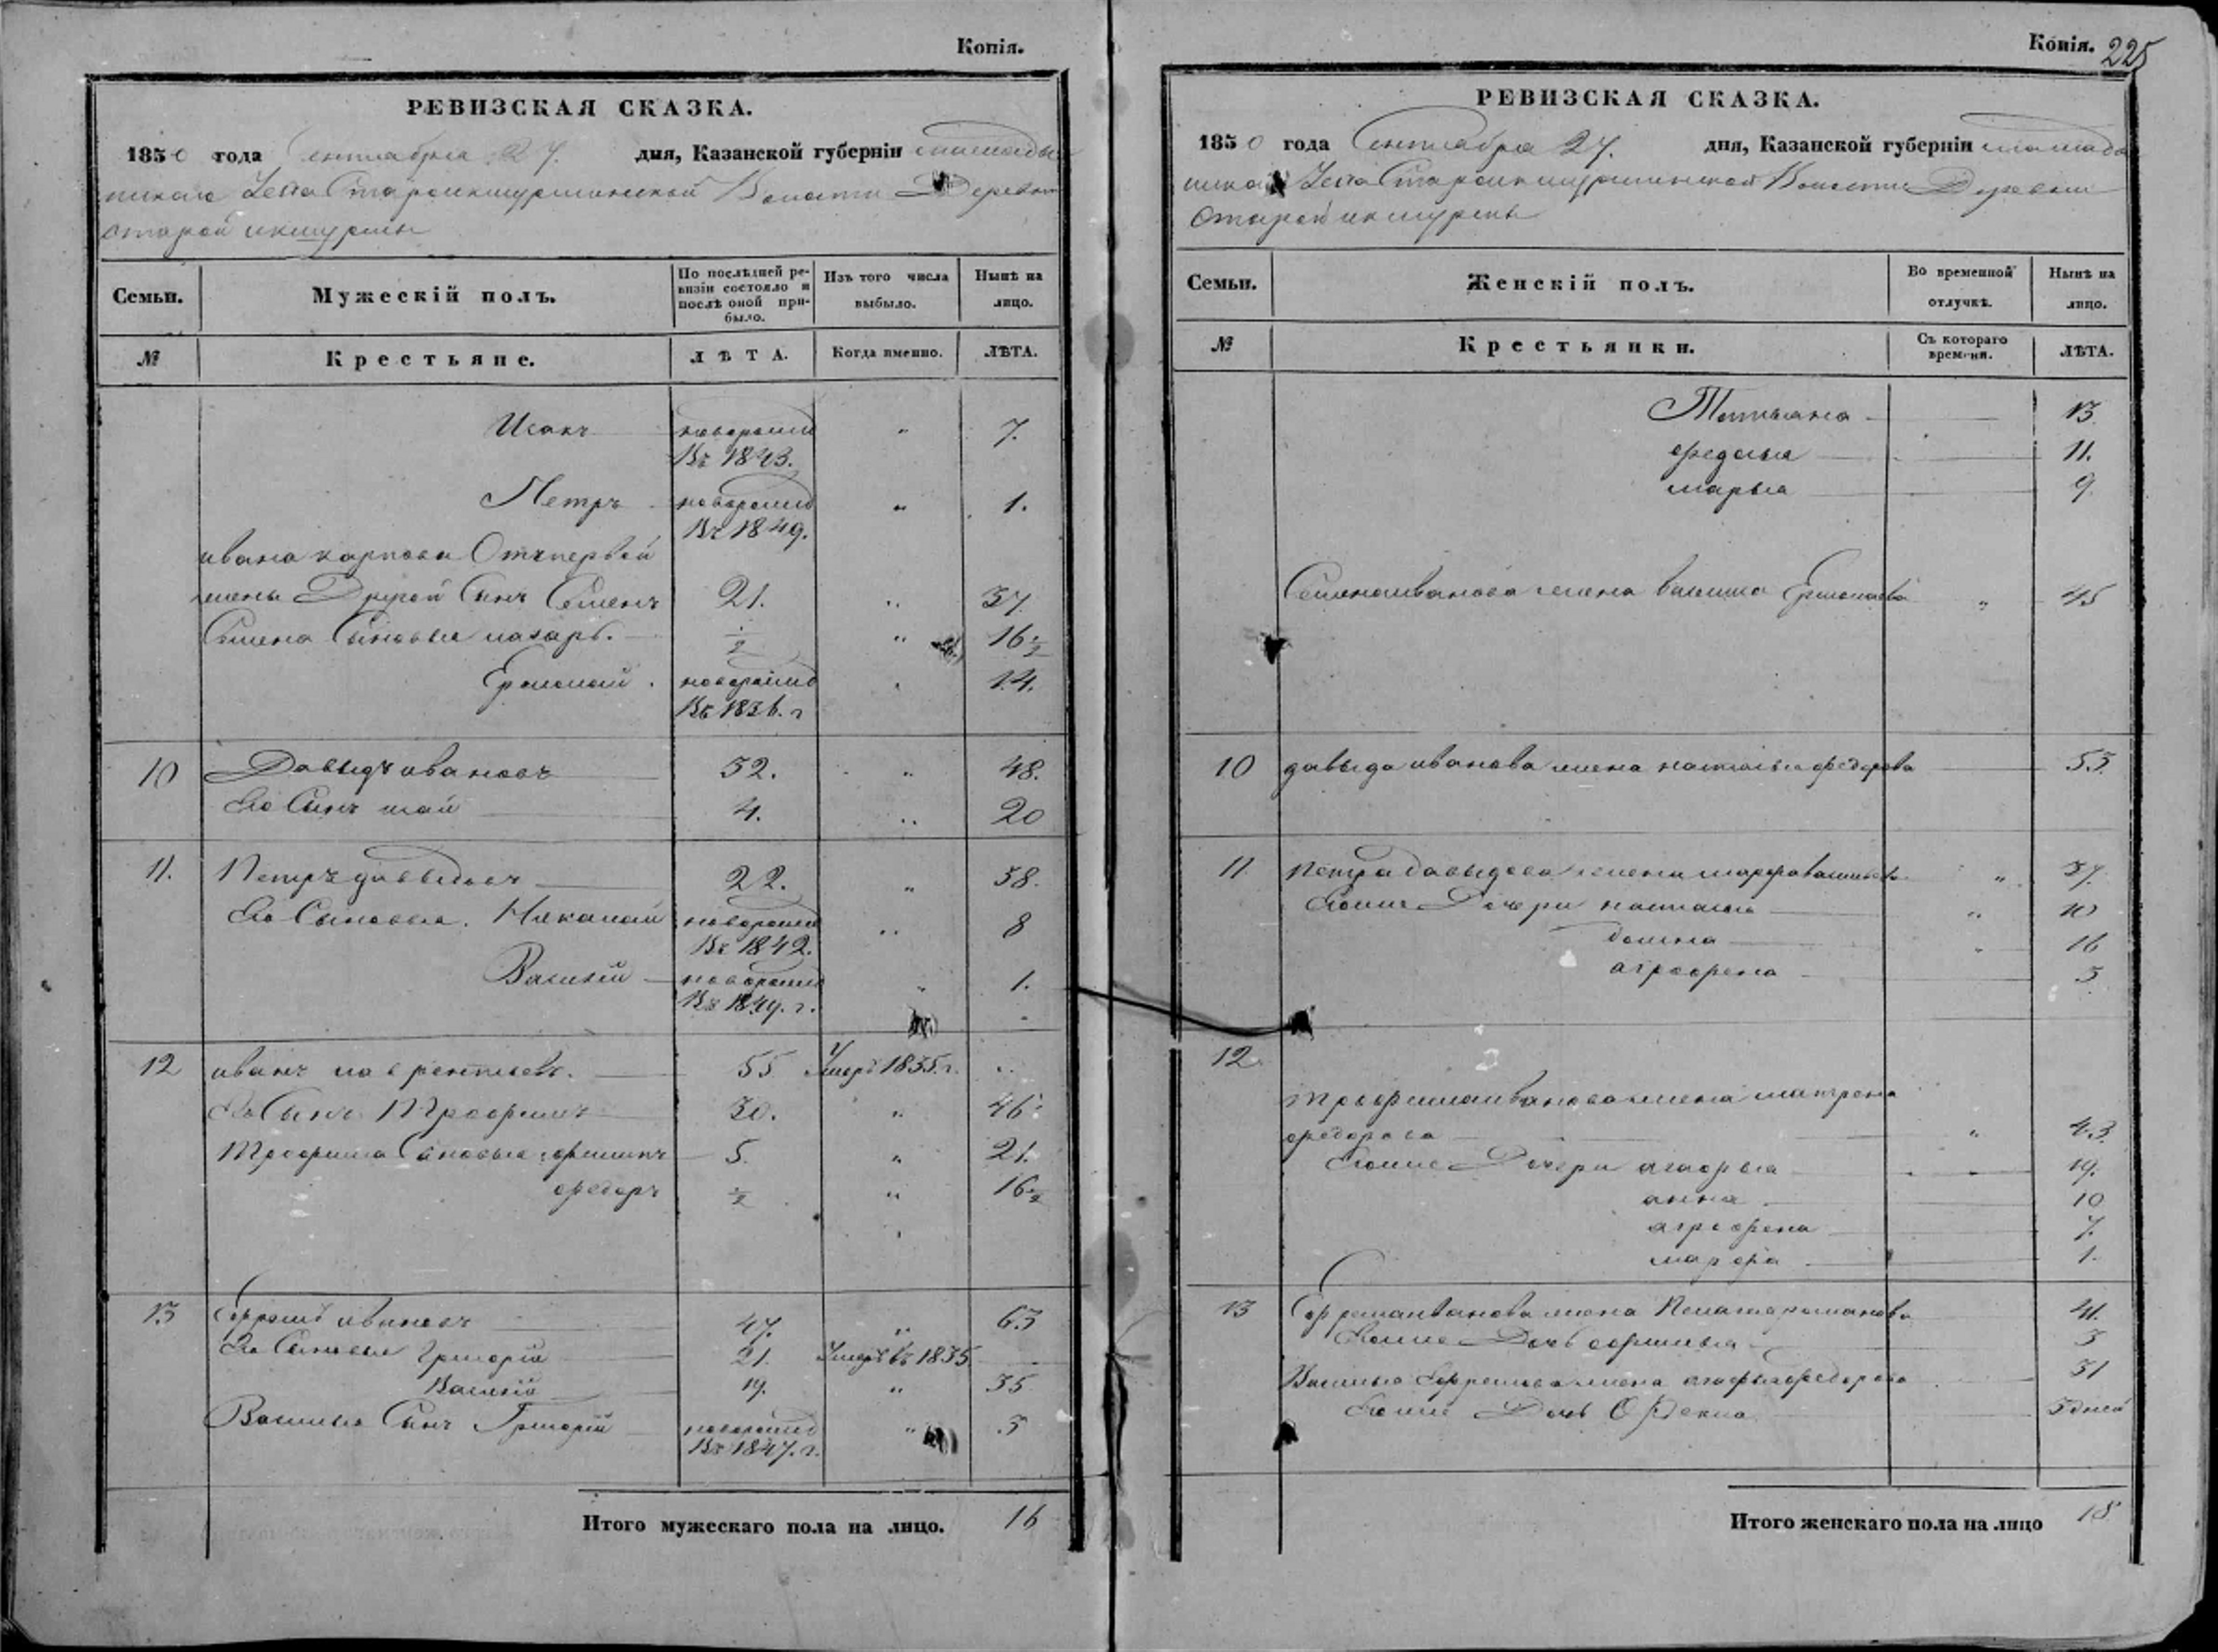 Копія.
РЕВИЗСКАЯ СКАЗКА.
1850 года Сентября 27. дня, Казанской губерніи
Уезда Староикшурминской Волости Деревни
Старой икшурмы
Семьи.
Мужескій полъ.
По послѣдней ре-
визіи состояло и
послѣ оной при-
было.
Изъ того числа
выбыло.
Нынѣ на
лицо.
№
Крестьяне.
ЛѢТА.
Когда именно.
ЛѢТА.
Исакъ новорожд " 7.
Въ 1843.
Петръ новорожд " 1.
Въ 1849.
ивана карпова Отъпервой
жены Другой Сынъ Семенъ 21. " 37.
Семена Сыновья лазарь. ½ " 16½
Ермолай. новорожд " 14.
Въ 1836. г
10 Давыдъ ивановъ 32. " 48.
Его Сынъ 4. " 20
11. Петръ давыдовъ 22. " 38.
Его Сыновья. Николай новорожд " 8
Въ 1842.
Василей новорожд " 1.
Въ 1849. г.
12 иванъ лаврентьевъ. 55 Умеръ 1835. г.
Его Сынъ Трофимъ 30. " 46.
Трофима Сыновья филипъ 5. " 21.
федоръ ½ " 16½
13 Ефремъ ивановъ 47. " 63
Его Сыновья Григорій 21. Умеръ въ 1835
Василій 19. " 35
Василья Сынъ Григорій новорожд " 3
Въ 1847. г.
Итого мужескаго пола на лицо. 16
Копія. 225
РЕВИЗСКАЯ СКАЗКА.
1850 года Сентября 27. дня, Казанской губерніи
Уезда Староикшурминской Волости Деревни
Старой икшурмы
Семьи.
Женскій полъ.
Во временной
отлучкѣ.
Нынѣ на
лицо.
№
Крестьянки.
Съ котораго
времени.
ЛѢТА.
Татьяна 13.
федосья 11.
марья 9.
Семена иванова жена Ермолаева " 45
10 давыда иванова жена настасья федорова 53.
11 Петра давыдова жена марфа " 37.
Его же Дочери настасья " 10
домна " 16
агрофена 3
12.
Трофима иванова жена матрена
федорова " 43.
Его же Дочери агафья 19.
анна 10
агрофена 7.
марфа 1.
13 Ефрема иванова жена Пелагея романова 41.
Его же Дочь 3
Василья Ефремова жена агафья федорова 31
Его же Дочь 5 дней
Итого женскаго пола на лицо 18